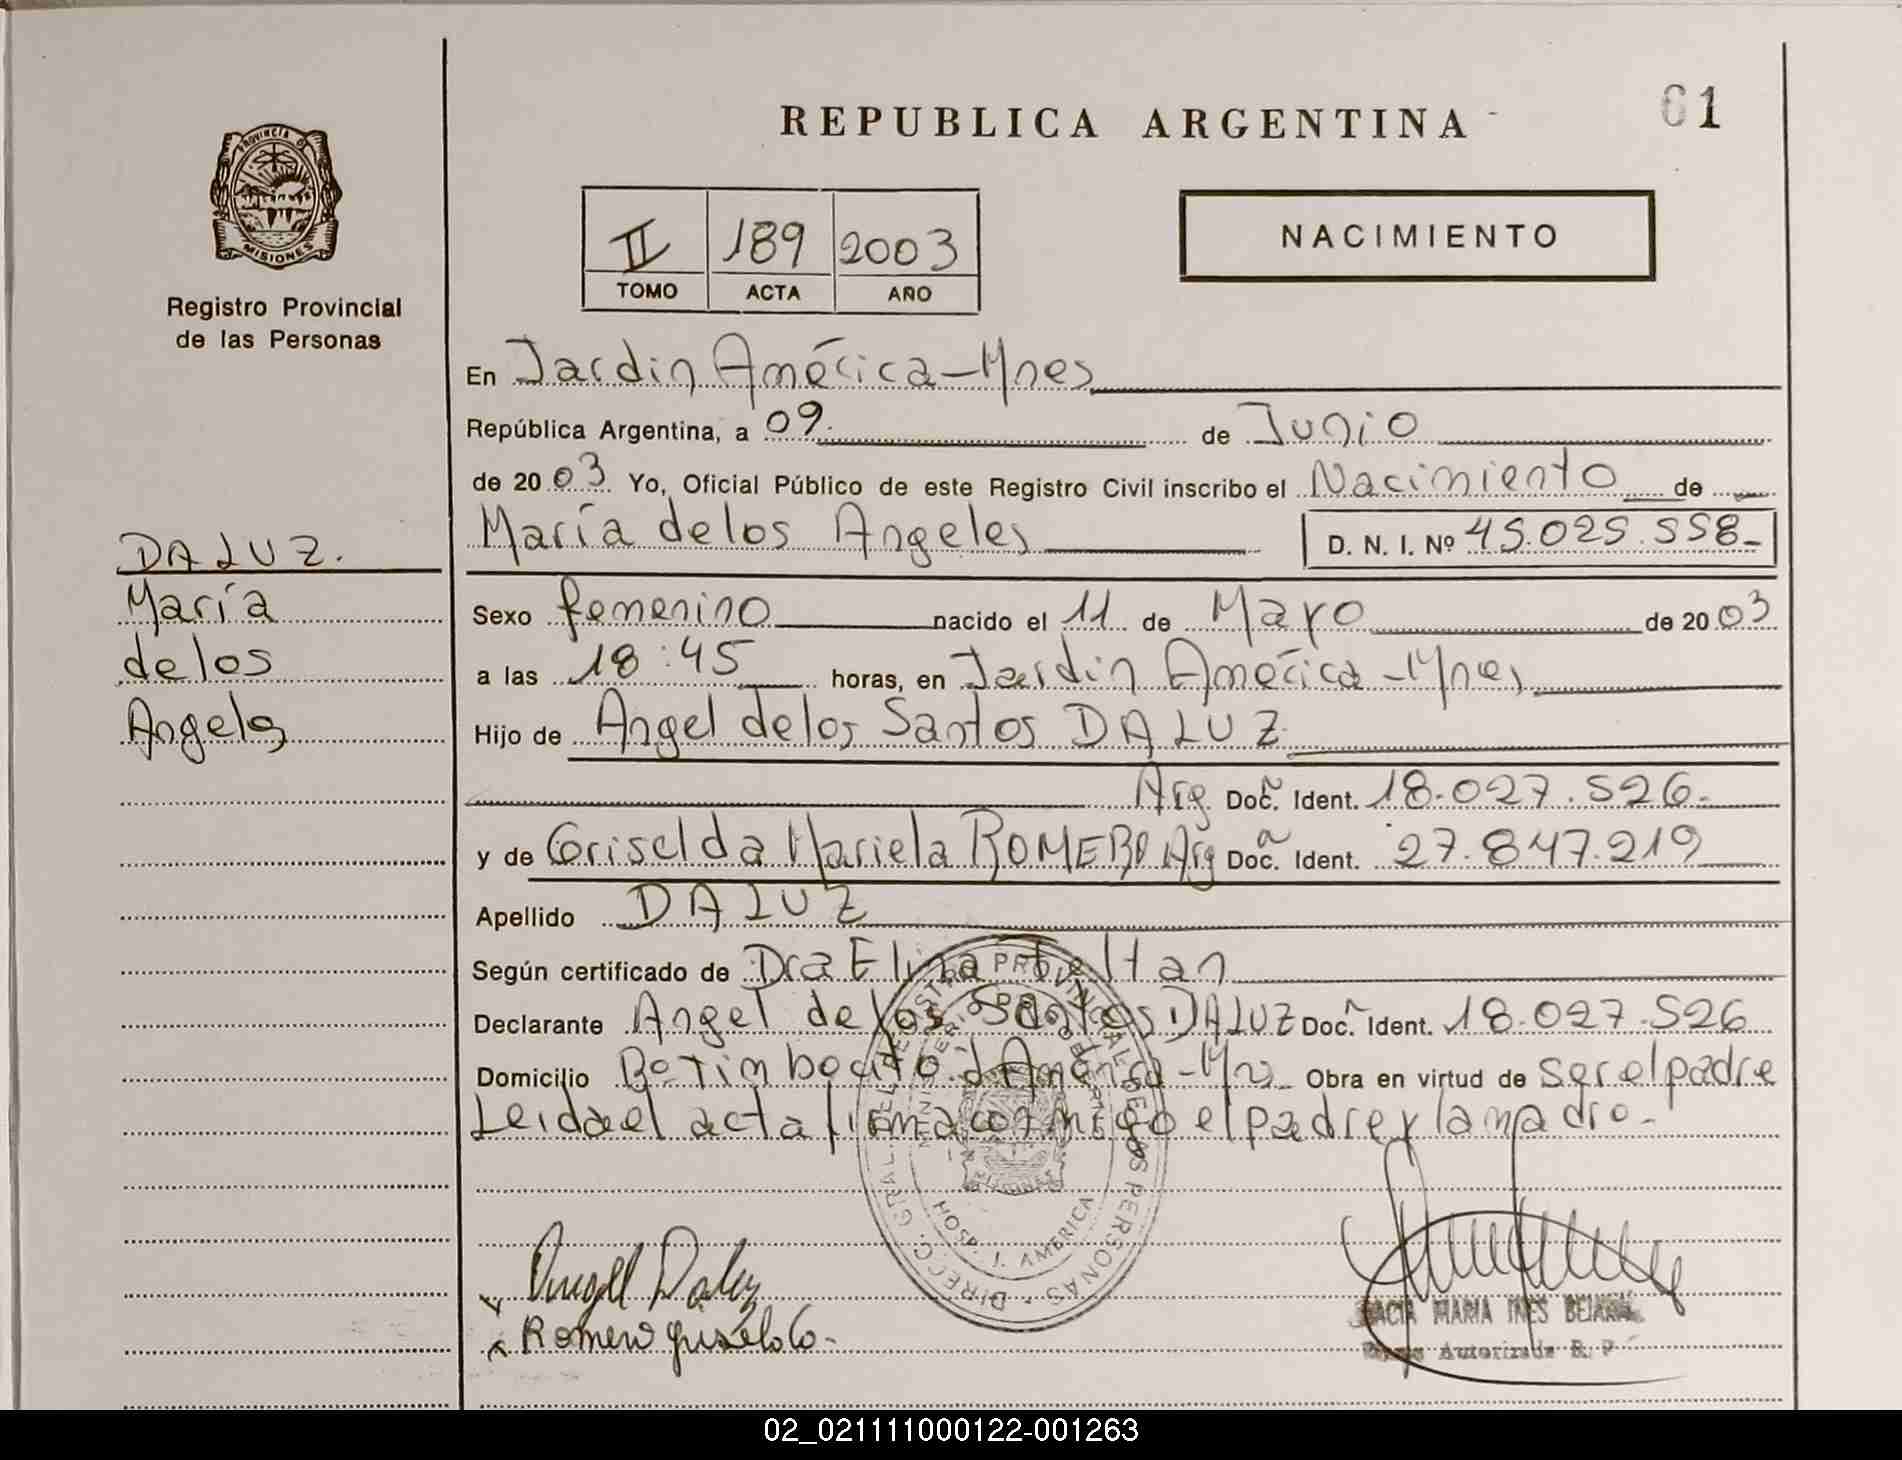 REPUBLICA ARGENTINA
61
PROVINCIA DE
MISIONES
Registro Provincial
de las Personas
II 189 2003
TOMO ACTA AÑO
NACIMIENTO
En Jardin América - Mnes
República Argentina, a 09 de Junio
de 2003 Yo, Oficial Público de este Registro Civil inscribo el Nacimiento de
María de los Angeles D. N. I. Nº 45.025.558
DA LUZ.
María
de los
Angeles
Sexo femenino nacido el 11 de Mayo de 2003
a las 18:45 horas, en Jardin América - Mnes
Hijo de Angel de los Santos DA LUZ
Arg Doc. Ident. 18.027.526.
y de Griselda Mariela ROMERO Arg Doc. Ident. 27.847.219
Apellido DA LUZ
Según certificado de Dra Elina Beltan
Declarante Angel de los Santos DA LUZ Doc. Ident. 18.027.526
Domicilio Bº Timbocito J América - Mnes Obra en virtud de ser el padre
Leida el acta firma conmigo el padre y la madre.
DIRECC. GRAL. DEL REGISTRO PROVINCIAL DE LAS PERSONAS
MINISTERIO DE GOBIERNO
HOSP. J. AMERICA
x Angel Daluz
x Romero Griselda
MARIA INES
Autorizada R. P
02_021111000122-001263